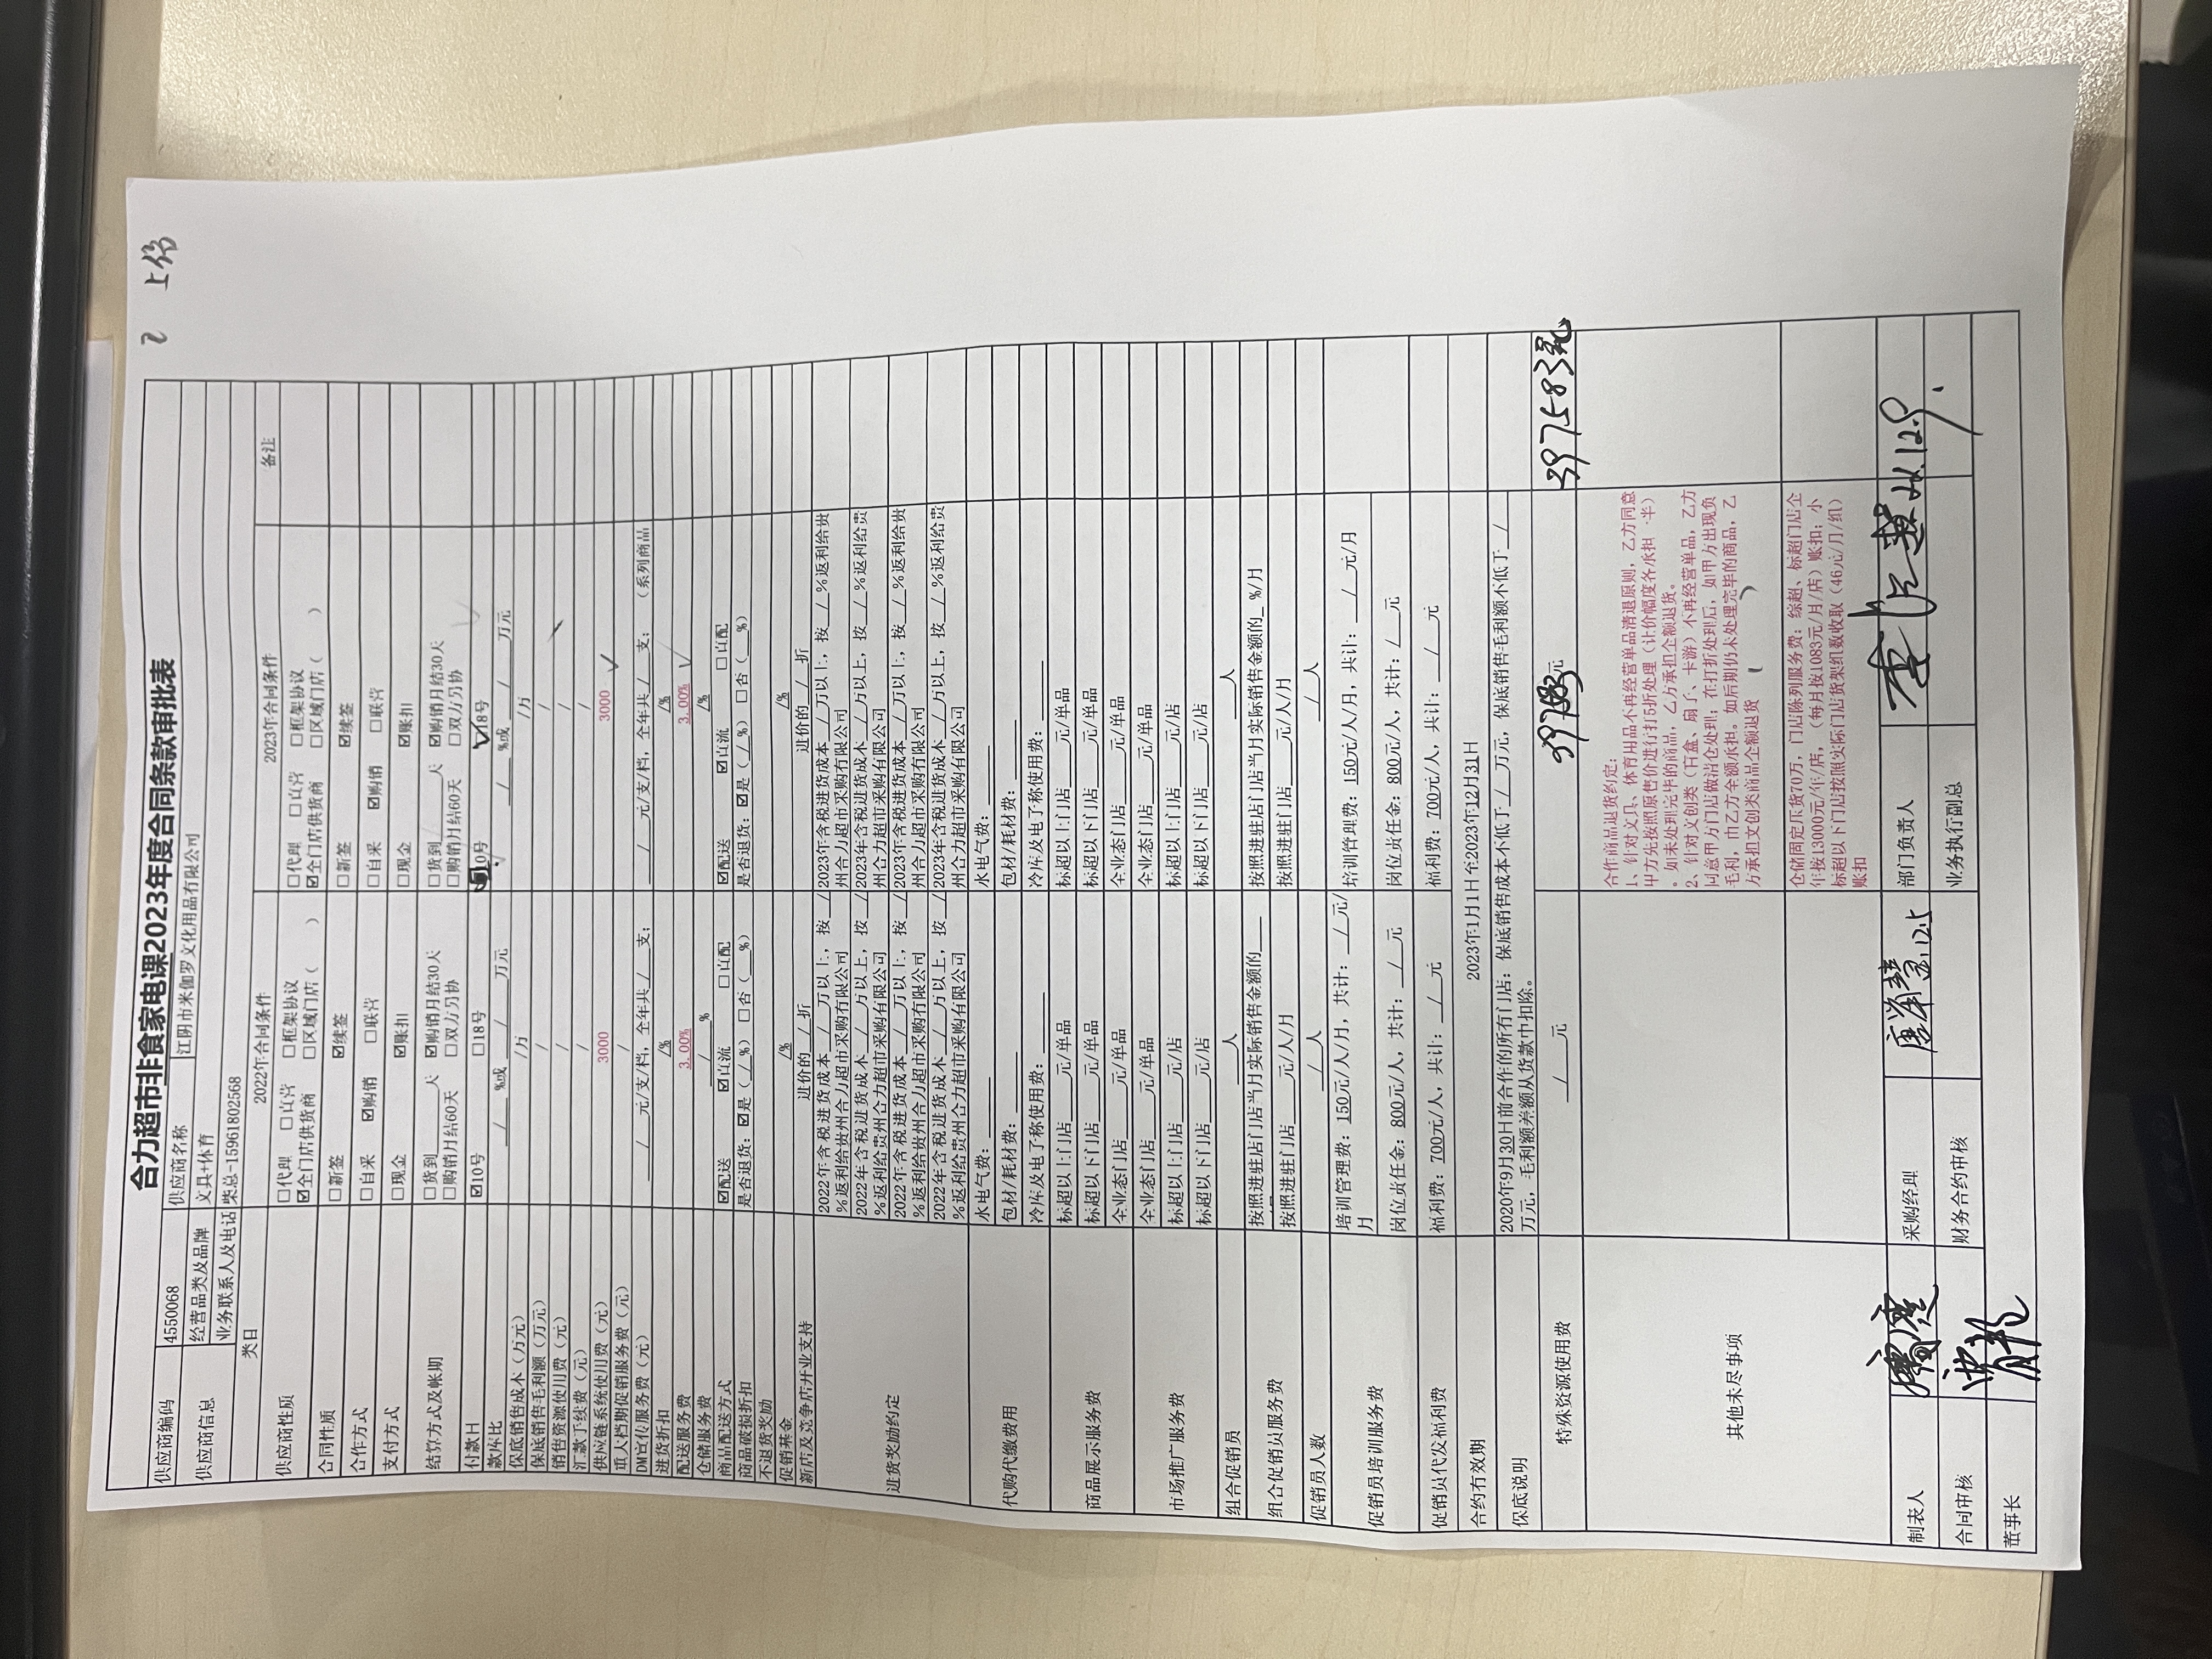 2 上传
合力超市非食家电课2023年度合同条款审批表
供应商编码 4550068 供应商名称 江阴市米伽罗文化用品有限公司
供应商信息 经营品类及品牌 文具+体育
业务联系人及电话 柴总-15961802568
类目 2022年合同条件 2023年合同条件 备注
供应商性质 □代理 □直营 □框架协议 □代理 □直营 □框架协议
☑全门店供货商 □区域门店（ ） ☑全门店供货商 □区域门店（ ）
合同性质 □新签 ☑续签 □新签 ☑续签
合作方式 □自采 ☑购销 □联营 □自采 ☑购销 □联营
支付方式 □现金 ☑账扣 □现金 ☑账扣
结算方式及帐期 □货到___天 ☑购销月结30天 □货到___天 ☑购销月结30天
□购销月结60天 □双方另协 □购销月结60天 □双方另协
付款日 ☑10号 □18号 10号 ☑18号
款库比 / %或 / 万元 / %或 / 万元
保底销售成本（万元） /万 /万
保底销售毛利额（万元） / /
销售资源使用费（元） / /
汇款手续费（元） / /
供应链系统使用费（元） 3000 3000 ✓
重大档期促销服务费（元） /
DM宣传服务费（元） / 元/支/档，全年共 / 支； / 元/支/档，全年共 / 支；（系列商品
进货折扣 /% /%
配送服务费 3.00% 3.00% ✓
仓储服务费 / % /%
商品配送方式 ☑配送 ☑直流 □直配 ☑配送 ☑直流 □直配
商品破损折扣 是否退货：☑是（ / %） □否（ %） 是否退货：☑是（ / %） □否（ %）
不退货奖励
促销基金 /% /%
新店及竞争店开业支持 进价的 / 折 进价的 / 折
进货奖励约定 2022年含税进货成本 / 万以上，按 / %返利给贵州合力超市采购有限公司 2023年含税进货成本 / 万以上，按 / %返利给贵州合力超市采购有限公司
2022年含税进货成本 / 万以上，按 / %返利给贵州合力超市采购有限公司 2023年含税进货成本 / 万以上，按 / %返利给贵州合力超市采购有限公司
2022年含税进货成本 / 万以上，按 / %返利给贵州合力超市采购有限公司 2023年含税进货成本 / 万以上，按 / %返利给贵州合力超市采购有限公司
2022年含税进货成本 / 万以上，按 / %返利给贵州合力超市采购有限公司 2023年含税进货成本 / 万以上，按 / %返利给贵州合力超市采购有限公司
代购代缴费用 水电气费：____ 水电气费：____
包材/耗材费：____ 包材/耗材费：____
冷库及电子称使用费：____ 冷库及电子称使用费：____
商品展示服务费 标超以上门店____元/单品 标超以上门店____元/单品
标超以下门店____元/单品 标超以下门店____元/单品
全业态门店____元/单品 全业态门店____元/单品
市场推广服务费 全业态门店____元/单品 全业态门店____元/单品
标超以上门店____元/店 标超以上门店____元/店
标超以下门店____元/店 标超以下门店____元/店
组合促销员 ____人 ____人
组合促销员服务费 按照进驻店门店当月实际销售金额的____ 按照进驻店门店当月实际销售金额的_ %/月
按照进驻门店____元/人/月 按照进驻门店____元/人/月
促销员人数 / 人 / 人
促销员培训服务费 培训管理费：150元/人/月，共计： / 元/月 培训管理费：150元/人/月，共计： / 元/月
岗位责任金：800元/人，共计： / 元 岗位责任金：800元/人，共计： / 元
促销员代发福利费 福利费：700元/人，共计： / 元 福利费：700元/人，共计： / 元
合约有效期 2023年1月1日至2023年12月31日
保底说明 2020年9月30日前合作的所有门店：保底销售成本不低于 / 万元，保底销售毛利额不低于 / 万元，毛利额差额从货款中扣除。
特殊资源使用费 / 元 元 397583元
其他未尽事项 合作商品退货约定：
1、针对文具、体育用品不再经营单品清退原则，乙方同意
甲方先按照原售价进行打5折处理（让价幅度各承担一半）
。如未处理完毕的商品，乙方承担全额退货。
2、针对文创类（盲盒、扇子、卡游）不再经营单品，乙方
同意甲方门店做清仓处理；在打折处理后，如甲方出现负
毛利，由乙方全额承担。如后期仍未处理完毕的商品，乙
方承担文创类商品全额退货
仓储固定压货70万，门店陈列服务费：综超、标超门店全
年按13000元/年/店，（每月按1083元/月/店）账扣；小
标超以下门店按照实际门店货架组数收取（46元/月/组）
账扣
制表人 采购经理 12.5 部门负责人
合同审核 财务合约审核 业务执行副总
董事长